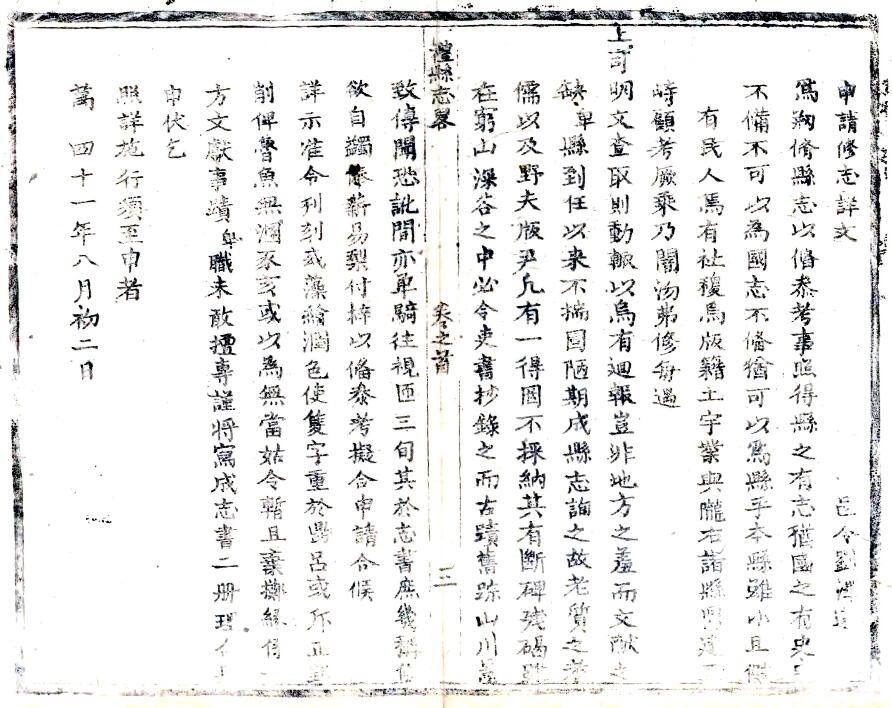 申請修志詳文
邑令劉
爲剏脩縣志以俻叅考事照得縣之有志猶國之有史
不備不可以為國志不俻猶可以爲縣乎本縣雖小且僻
有民人焉有社稷焉版籍土宇業與隴右諸縣
峙顧考厥乘乃闇汤弗修每遇
上司明文查取則動輙以烏有廻報豈非地方之羞而文獻之
缺卑縣到任以来不揣固陋期成縣志詢之故老質之
儒以及野夫版尹凡有一得罔不採納其有斷碑残碣雖
在窮山深谷之中必令吏書抄錄之而古蹟舊跡山川
禮縣志畧
卷之首
三
致傳聞恐訛間亦單騎往視匝三旬其於志書庶幾稱
欲自蠲俸薪易梨付梓以俻叅考擬合申請合候
詳示准令刋刻或藻繪潤色使隻字重於鼎吕或斤正
削俾魯魚無溷豕亥或以爲無當姑令暫且
方文獻事蹟卑職未敢擅專謹将寫成志書二册理合
申伏乞
照詳施行須至申者
萬 四十一年八月初二日